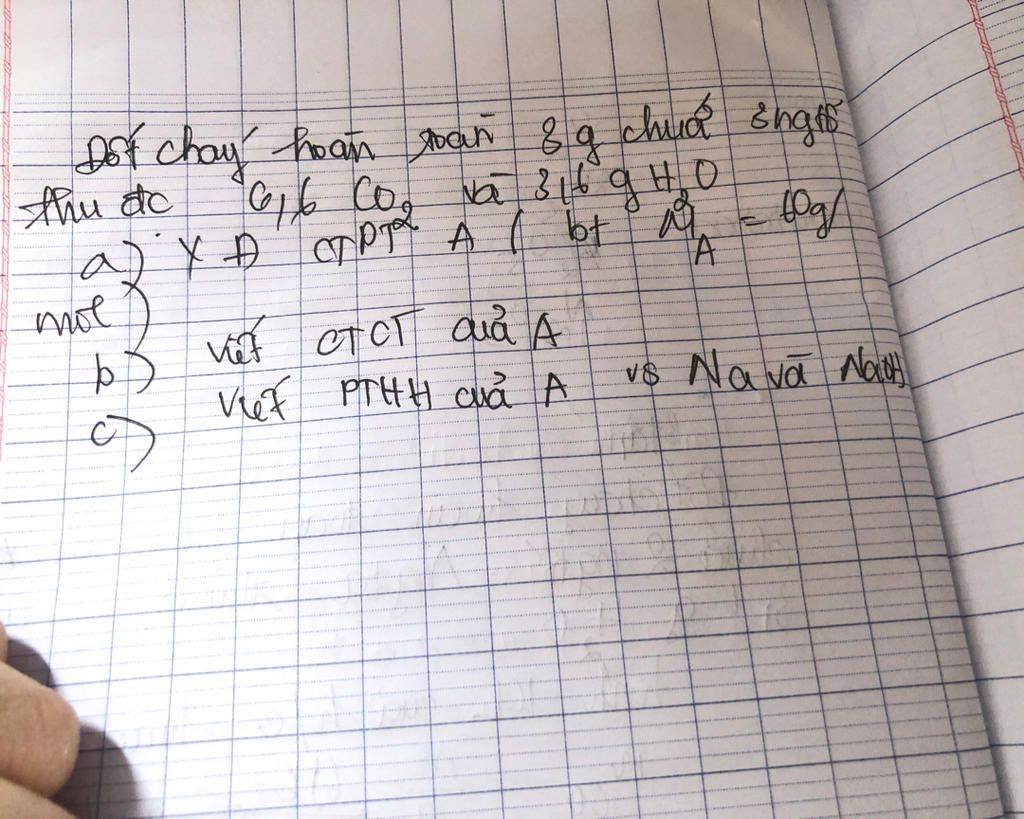 Đốt cháy hoàn toàn 3 g chuá 3 ngtố
thu đc 6,6 CO2 và 3,6 g H2O
a) XĐ CTPT A ( bt MA = 60g/
mol)
b) viết CTCT quả A
c) viết PTHH quả A vs Na và NaOH